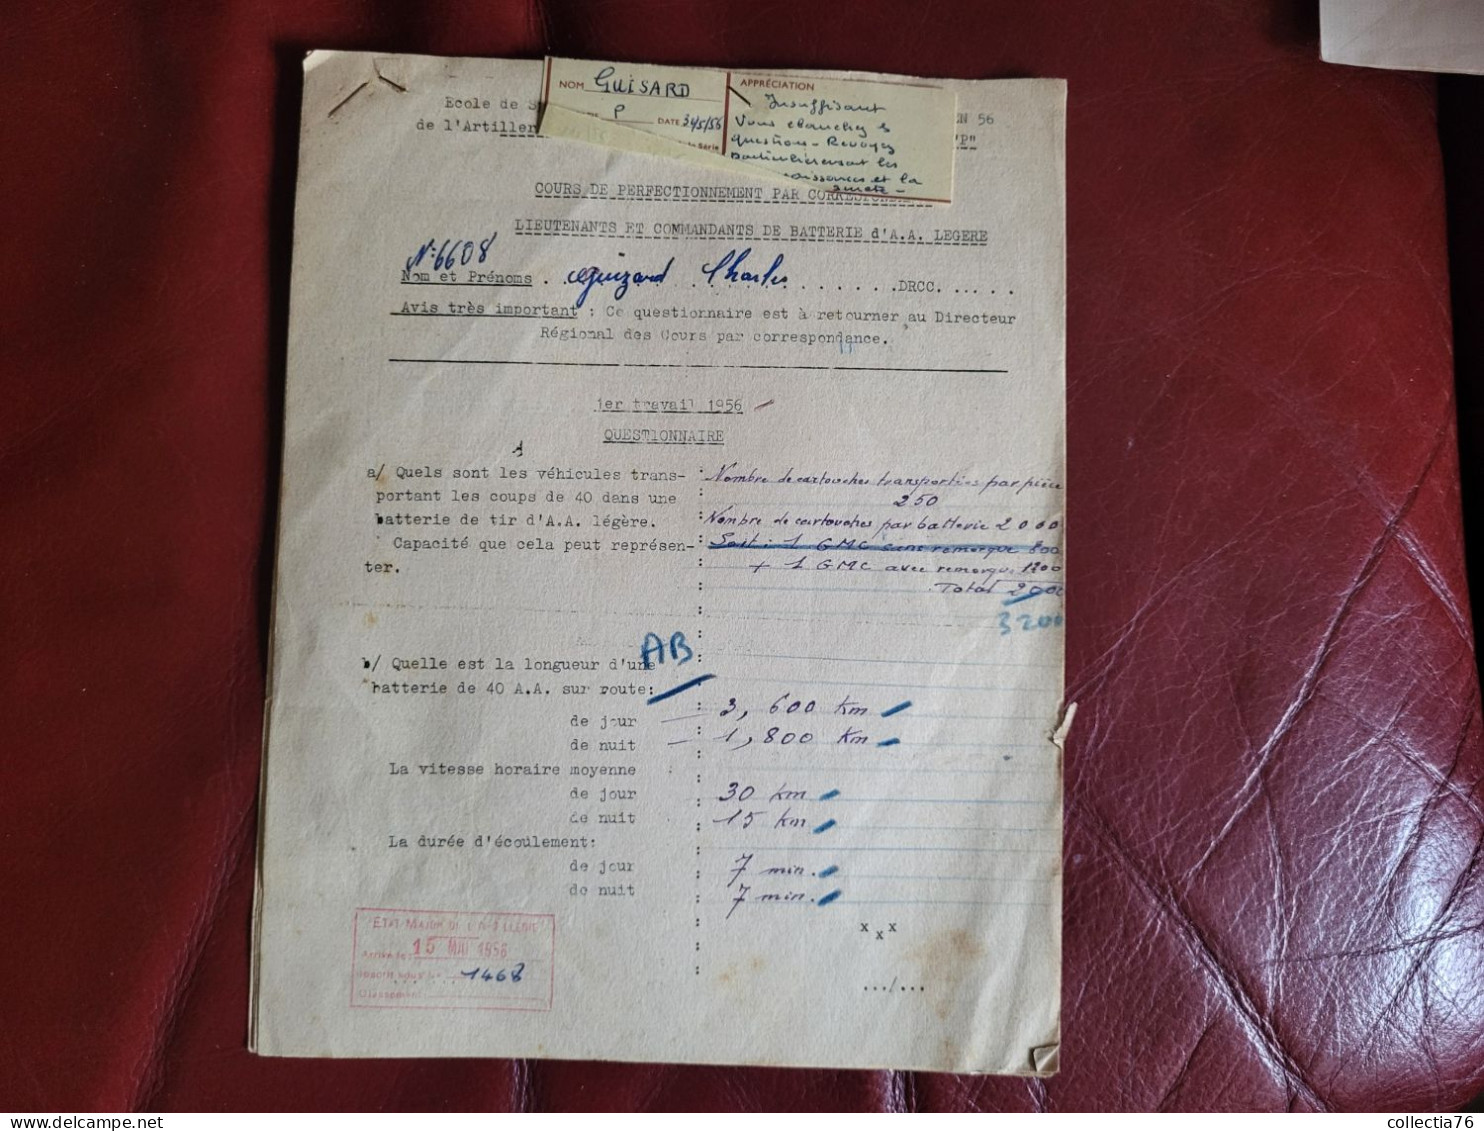 Ecole de
de l'Artiller
NOM GUISARD
P DATE 31/5/56
de Série
APPRÉCIATION
Insuffisant
Vous ébauchez
questions - Revoyez
particulièrement les
et la
EN 56
COURS DE PERFECTIONNEMENT PAR
LIEUTENANTS ET COMMANDANTS DE BATTERIE d'A.A. LEGERE
N° 6608
Nom et Prénoms . . Guizard Charles . . . . . . . DRCC. . . . . .
Avis très important : Ce questionnaire est à retourner au Directeur
Régional des Cours par correspondance.
1er travail 1956
QUESTIONNAIRE
a/ Quels sont les véhicules trans-
portant les coups de 40 dans une
batterie de tir d'A.A. légère.
Capacité que cela peut représen-
ter.
Nombre de cartouches transportées par pièce
250
Nombre de cartouches par batterie 2000
Soit : 1 GMC sans remorque 800
+ 1 GMC avec remorque 1200
Total 2000
3200
AB
b/ Quelle est la longueur d'une
batterie de 40 A.A. sur route:
de jour 3,600 Km
de nuit 1,800 Km
La vitesse horaire moyenne :
de jour 30 Km
de nuit 15 Km
La durée d'écoulement:
de jour 7 min.
de nuit 7 min.
x x x
.../...
15 MAI 1956
1468
collectia76